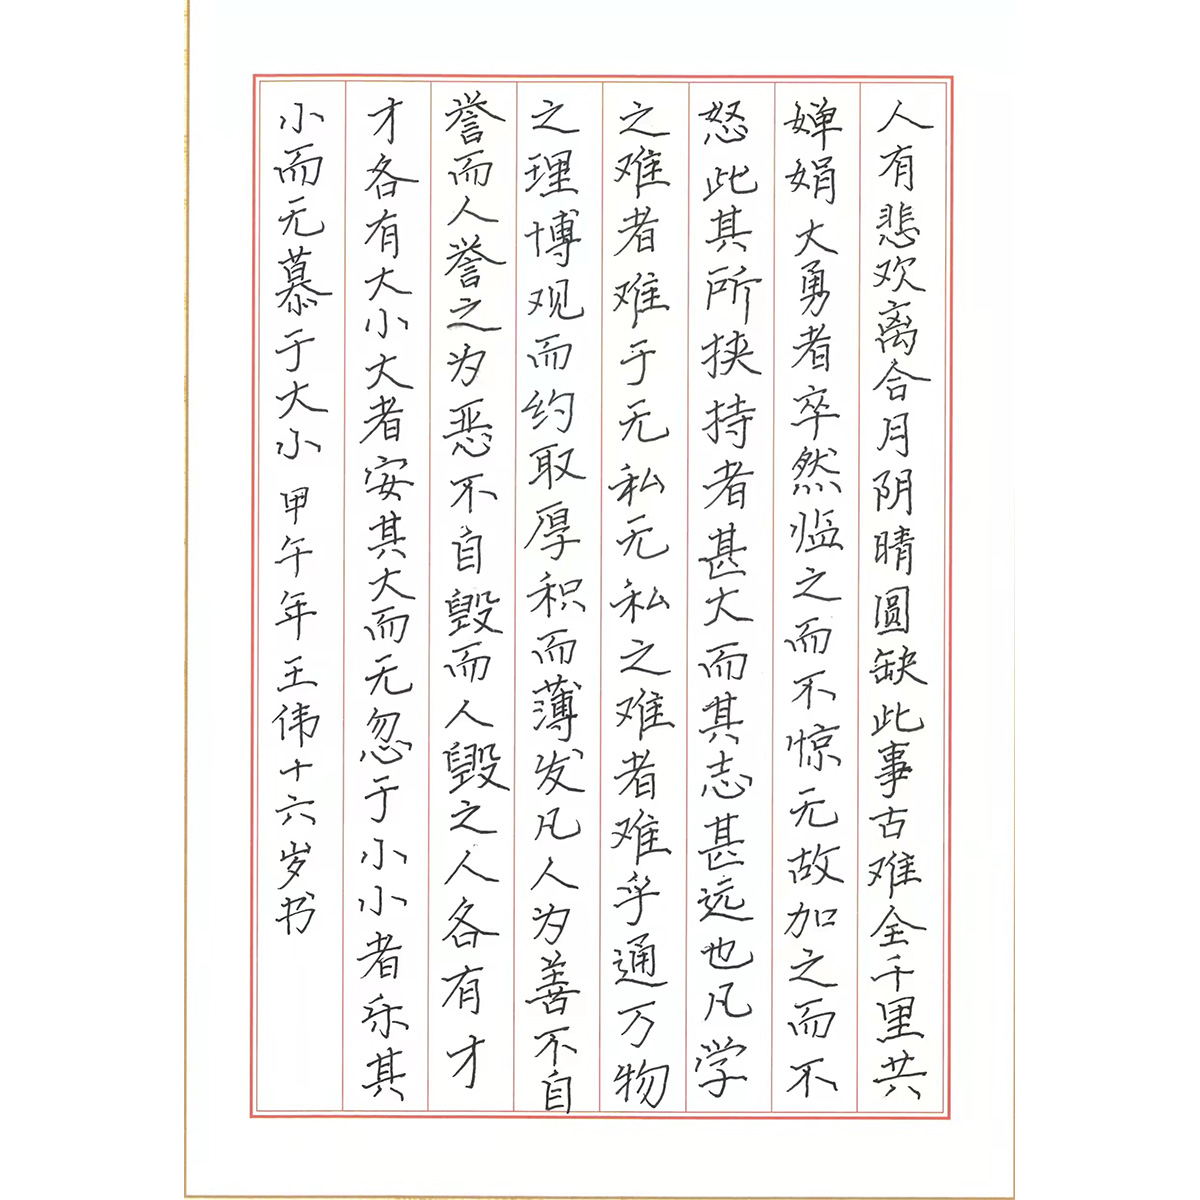 人有悲欢离合月阴晴圆缺此事古难全千里共
婵娟大勇者卒然临之而不惊无故加之而不
怒此其所挟持者甚大而其志甚远也凡学
之难者难于无私无私之难者难乎通万物
之理博观而约取厚积而薄发凡人为善不自
誉而人誉之为恶不自毁而人毁之人各有才
才各有大小大者安其大而无忽于小小者乐其
小而无慕于大小 甲午年王伟十六岁书